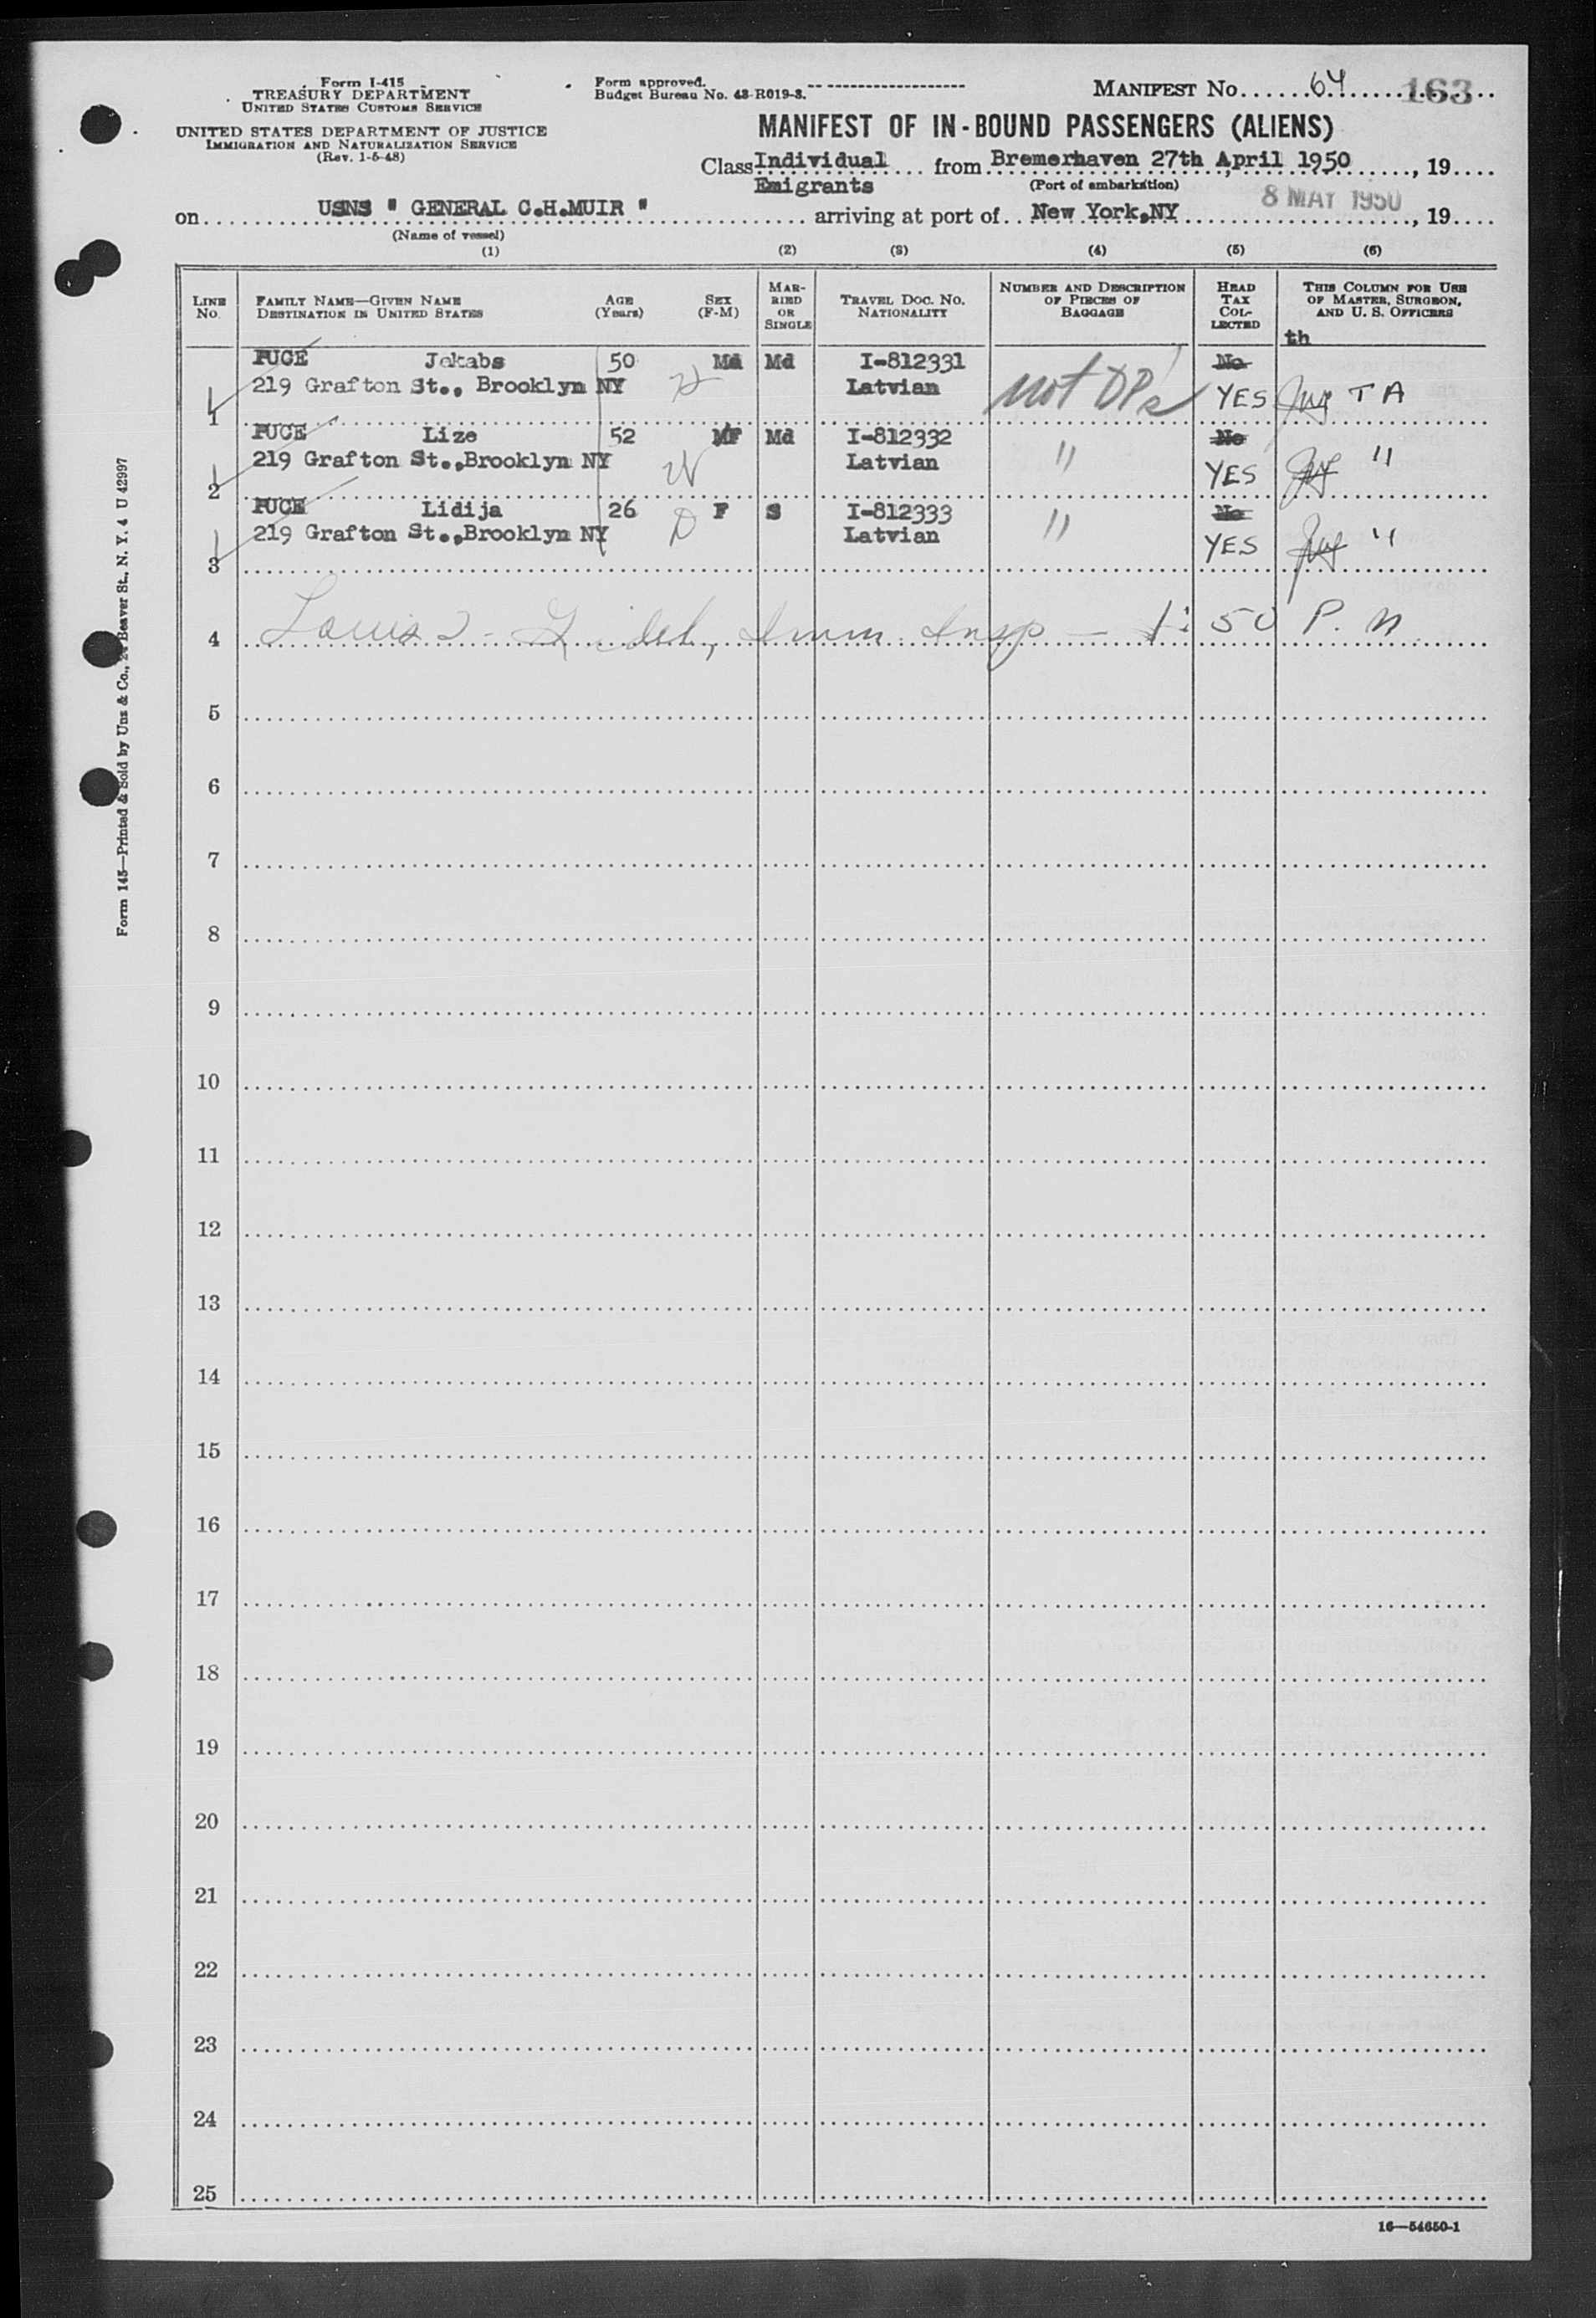 Form I-415
TREASURY DEPARTMENT
UNITED STATES CUSTOMS SERVICE
UNITED STATES DEPARTMENT OF JUSTICE
IMMIGRATION AND NATURALIZATION SERVICE
(Rev. 1-5-48)
Form approved.
Budget Bureau No. 43-R019-3.
MANIFEST No. 64 163
MANIFEST OF IN-BOUND PASSENGERS (ALIENS)
Class Individual from Bremerhaven 27th April 1950, 19
Emigrants (Port of embarkation)
on USNS " GENERAL C.H.MUIR " arriving at port of New York,NY 8 MAY 1950, 19
(Name of vessel)
(1) (2) (3) (4) (5) (6)
LINE No. FAMILY NAME—GIVEN NAME DESTINATION IN UNITED STATES AGE (Years) SEX (F-M) MARRIED OR SINGLE TRAVEL DOC. NO. NATIONALITY NUMBER AND DESCRIPTION OF PIECES OF BAGGAGE HEAD TAX COLLECTED THIS COLUMN FOR USE OF MASTER, SURGEON, AND U. S. OFFICERS
th
PUCE Jekabs 50 Md Md I-812331 No
219 Grafton St., Brooklyn NY Latvian not DP's YES T A
1
PUCE Lize 52 MF Md I-812332 No
219 Grafton St.,Brooklyn NY W Latvian " YES "
2
PUCE Lidija 26 D F S I-812333 No
219 Grafton St.,Brooklyn NY Latvian " YES "
3
4 Louis Imm. Insp — 1:50 P. M.
5
6
7
8
9
10
11
12
13
14
15
16
17
18
19
20
21
22
23
24
25
16—54650-1
Form 145—Printed & Sold by Unz & Co., 24 Beaver St., N. Y. 4 U 42997